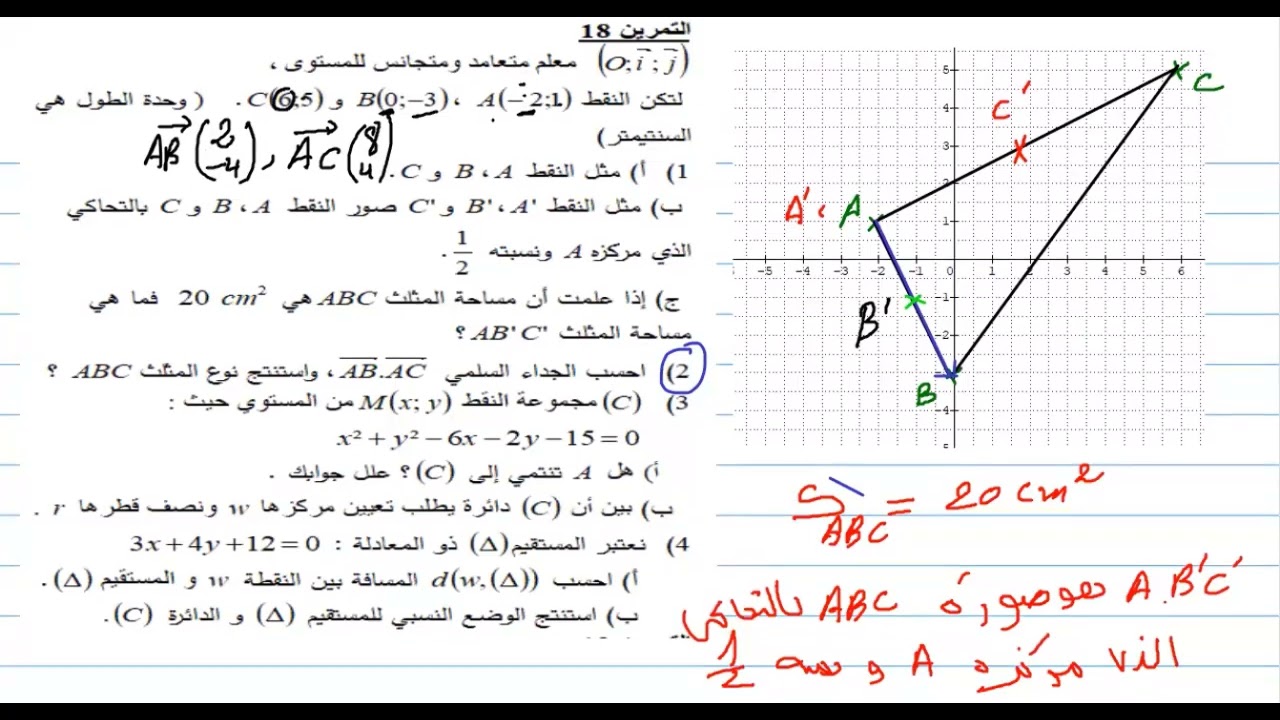 التمرين 18
(O; i ; j) معلم متعامد ومتجانس للمستوى ،
لتكن النقط A(−2;1) ، B(0;−3) و C(6;5) . ( وحدة الطول هي
السنتيمتر)
AB (2 −4) , AC (8 4)
1) أ) مثل النقط A ، B و C .
ب) مثل النقط A' ، B' و C' صور النقط A ، B و C بالتحاكي
الذي مركزه A ونسبته 1/2 .
ج) إذا علمت أن مساحة المثلث ABC هي 20 cm² فما هي
مساحة المثلث AB'C' ؟
2) احسب الجداء السلمي AB.AC ، واستنتج نوع المثلث ABC ؟
3) (C) مجموعة النقط M(x; y) من المستوي حيث :
x² + y² − 6x − 2y − 15 = 0
أ) هل A تنتمي إلى (C) ؟ علل جوابك .
ب) بين أن (C) دائرة يطلب تعيين مركزها w ونصف قطرها r .
4) نعتبر المستقيم (Δ) ذو المعادلة : 3x + 4y + 12 = 0
أ) احسب d(w,(Δ)) المسافة بين النقطة w و المستقيم (Δ) .
ب) استنتج الوضع النسبي للمستقيم (Δ) و الدائرة (C) .
5
C
4
C'
3
2
A' , A
1
-5 -4 -3 -2 -1 0 1 2 3 4 5 6
-1
B'
-2
B
-4
S ABC = 20 cm²
A B'C' هو صورة ABC بالتحاكي
الذي مركزه A و نسبته 1/2